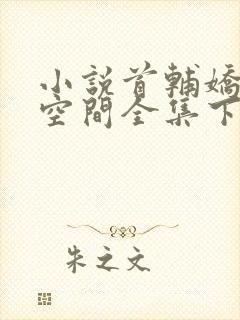 小說首輔嬌
空間全集下
朱之文